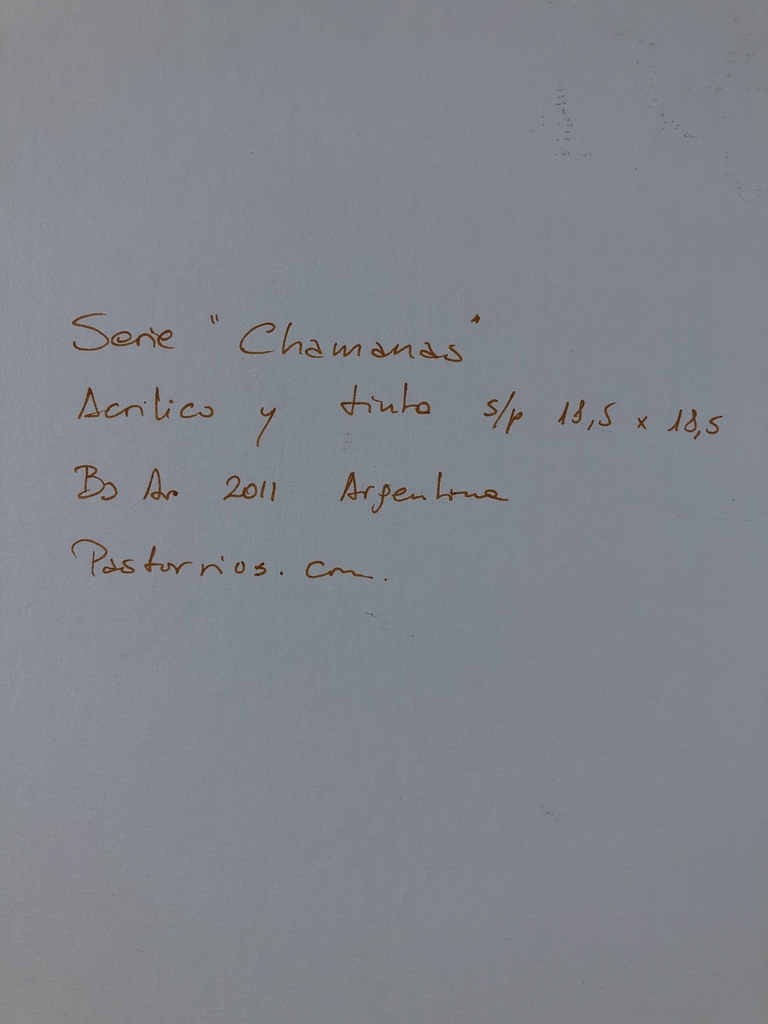 Serie "Chamanas"
Acrilico y tinta s/p 18,5 x 18,5
Bs As 2011 Argentina
Pastorrios.com.